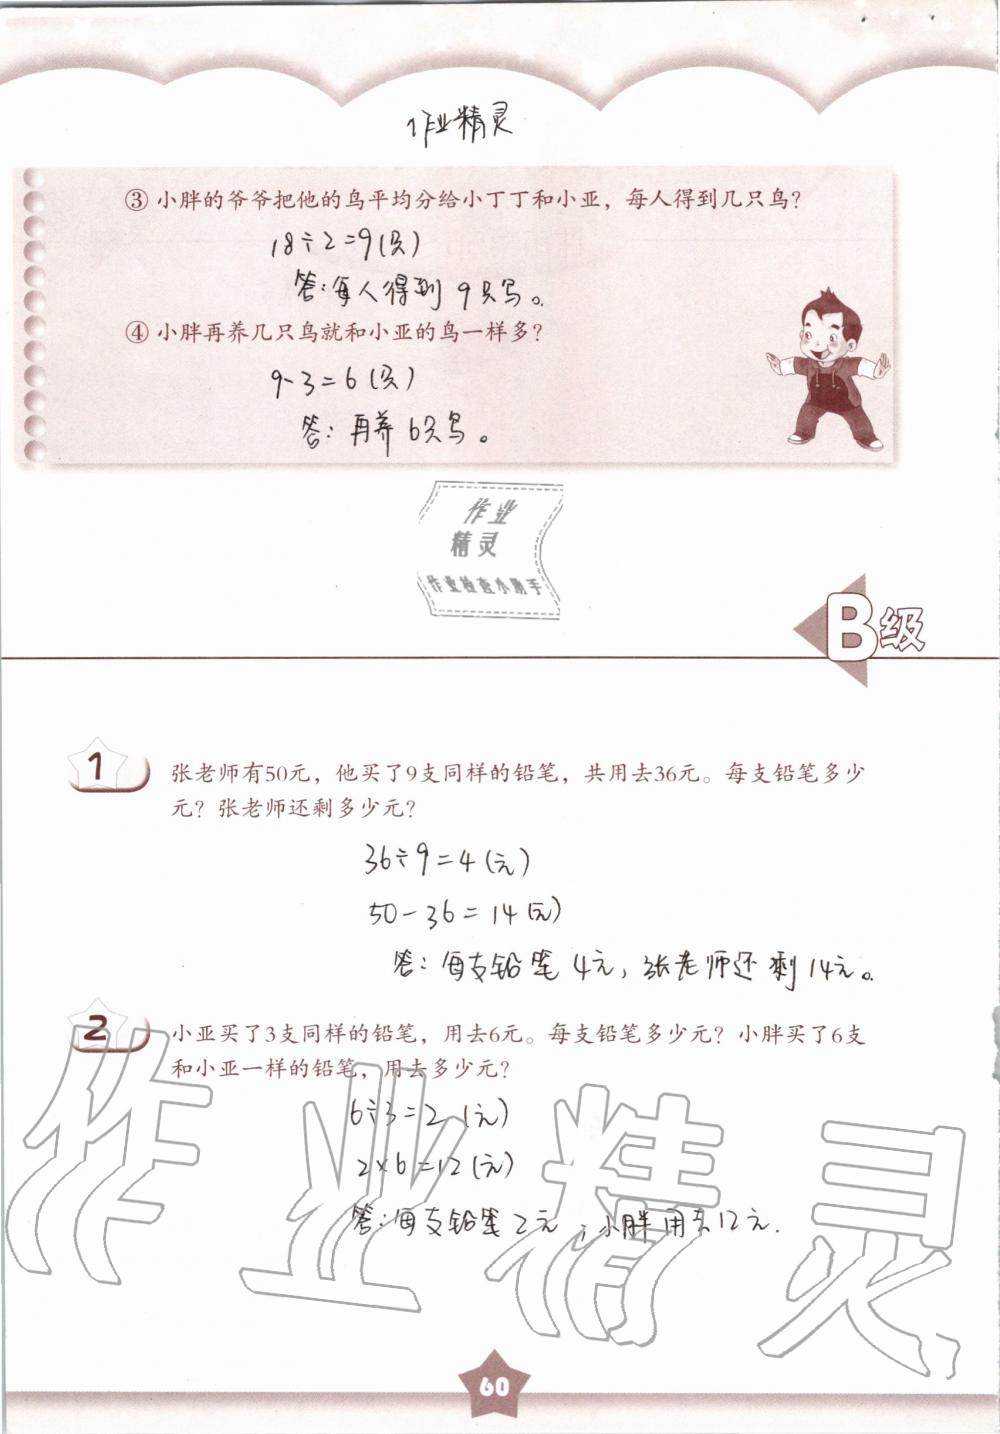 作业精灵
③ 小胖的爷爷把他的鸟平均分给小丁丁和小亚，每人得到几只鸟？
18÷2=9(只)
答：每人得到9只鸟。
④ 小胖再养几只鸟就和小亚的鸟一样多？
9-3=6(只)
答：再养6只鸟。
作业
精灵
作业检查小助手
B级
1
张老师有50元，他买了9支同样的铅笔，共用去36元。每支铅笔多少
元？张老师还剩多少元？
36÷9=4(元)
50-36=14(元)
答：每支铅笔4元，张老师还剩14元。
2
小亚买了3支同样的铅笔，用去6元。每支铅笔多少元？小胖买了6支
和小亚一样的铅笔，用去多少元？
6÷3=2(元)
2×6=12(元)
答：每支铅笔2元，小胖用去12元.
作业精灵
60